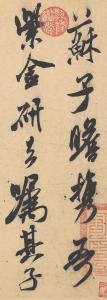 蘇子瞻携吾
紫金研去嘱其子